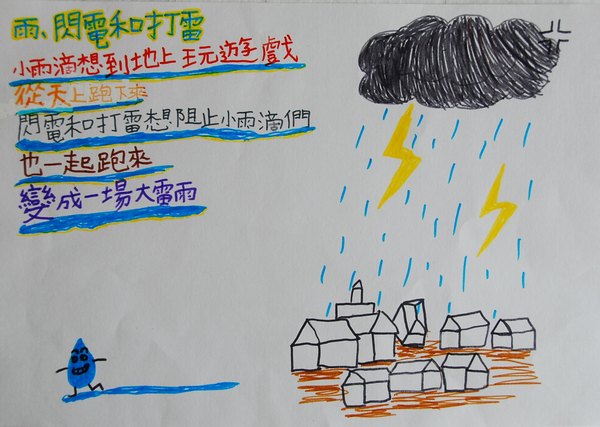 雨、閃電和打雷
小雨滴想到地上玩遊戲
從天上跑下來
閃電和打雷想阻止小雨滴們
也一起跑來
變成一場大雷雨